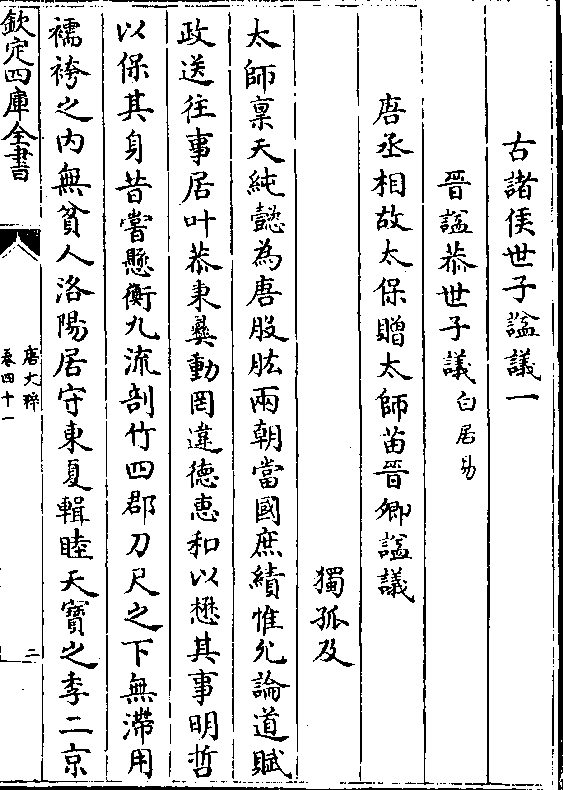 古諸侯世子諡議一
晉諡恭世子議白居易
唐丞相故太保贈太師苗晉卿諡議
獨孤及
太師禀天純懿為唐股肱兩朝當國庶績惟允論道賦
政送往事居叶恭秉彝動罔違德惠和以懋其事明哲
以保其身昔嘗懸衡九流剖竹四郡刀尺之下無滯用
襦袴之内無貧人洛陽居守東夏輯睦天寶之季二京
欽定四庫全書
唐文粹
卷四十一
二